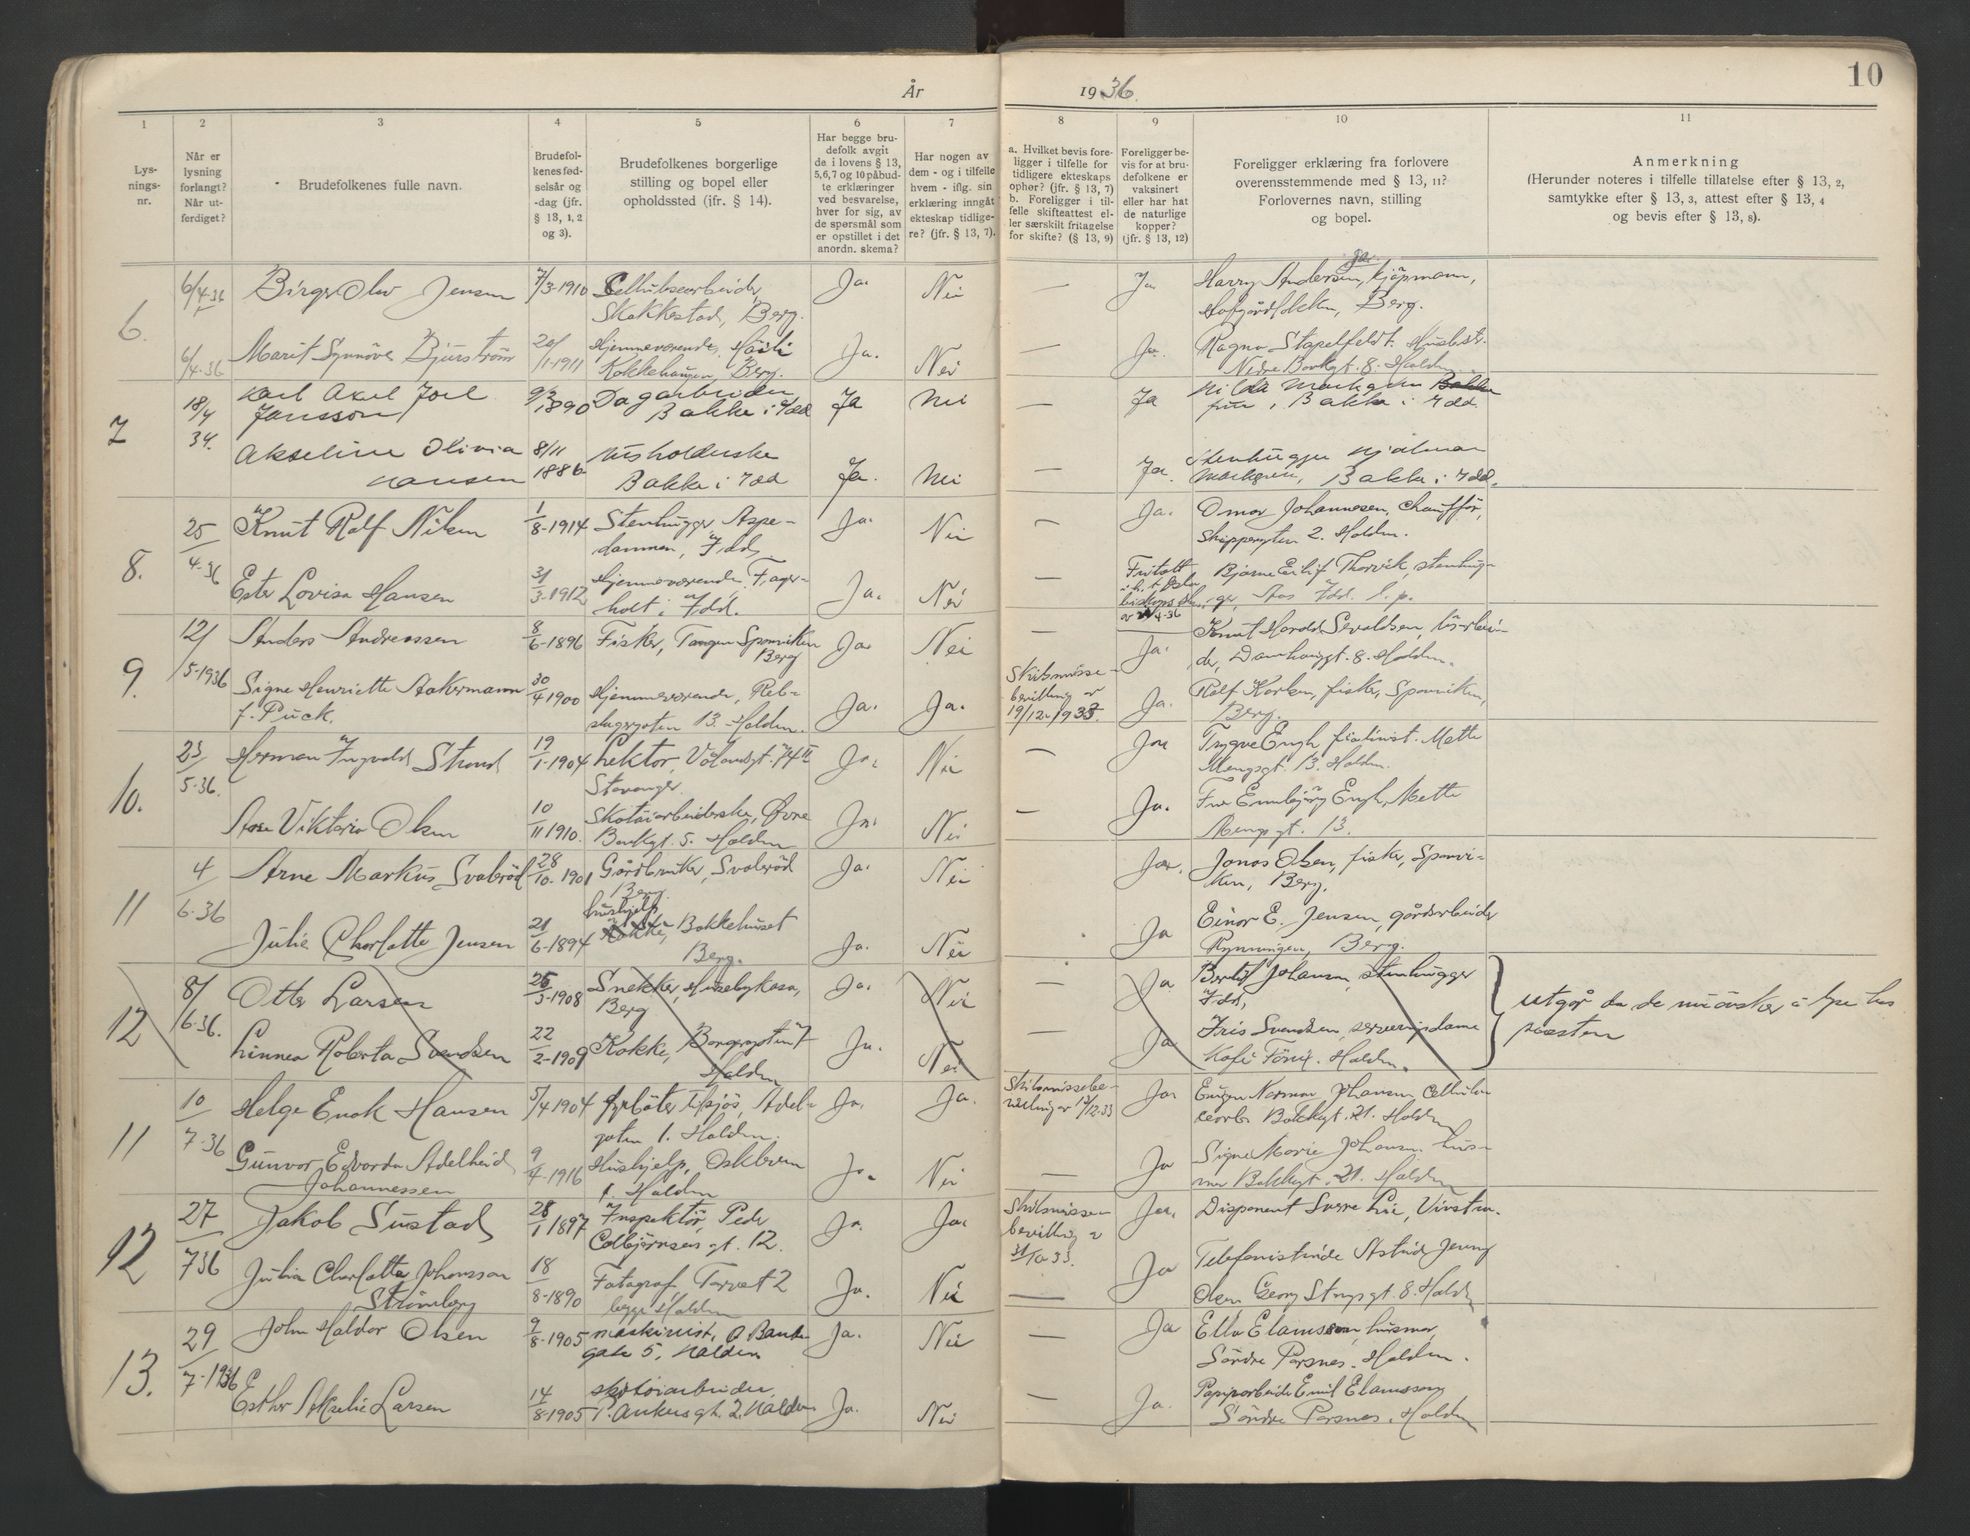 År 1936. 10
1 2 3 4 5 6 7 8 9 10 11
Lys-
nings-
nr.
Når er
lysning
forlangt?
Når ut-
ferdiget?
Brudefolkenes fulle navn.
Brudefol-
kenes fød-
selsår og
-dag (jfr.
§ 13, 1, 2
og 3).
Brudefolkenes borgerlige
stilling og bopel eller
opholdssted (ifr. § 14).
Har begge bru-
defolk avgit
de i lovens § 13,
5,6,7 og 10 påbud-
te erklæringer
ved besvarelse,
hver for sig, av
de spørsmål som
er opstillet i det
anordn. skema?
Har nogen av
dem - og i tilfelle
hvem - iflg. sin
erklæring inngåt
ekteskap tidlige-
re? (jfr. § 13, 7).
a. Hvilket bevis fore-
ligger i tilfelle for
tidligere ekteskaps
ophør? (jfr. § 13, 7)
b. Foreligger i til-
felle skifteattest el-
ler særskilt fritagelse
for skifte? (§ 13, 9)
Foreligger be-
vis for at bru-
defolkene er
vaksinert
eller har hat
de naturlige
kopper?
(jfr. § 13, 12)
Foreligger erklæring fra forlovere
overensstemmende med § 13, 11?
Forlovernes navn, stilling
og bopel.
Anmerkning
(Herunder noteres i tilfelle tillatelse efter § 13, 2,
samtykke efter § 13, 3, attest efter § 13, 4
og bevis efter § 13, 8).
6.
6/4-36 Birger Olav Jensen 7/3-1910 Cellulosearbeider, Ja. Nei — Ja Harry Andersen, kjøpmann,
Skakkestad, Berg. Berg.
6/4-36 Marit Synnöve Bjurström 20/1-1911 Hjemmeværende, Ja. Nei — Ja. Ragna Stapelfeldt. Husbest.
Berg. Nedre Bankgt. 8. Halden
7
18/4 34. Karl Axel Joel 9/3 1890 Dagarbeider Ja Nei — Ja Hilda Markgren
Jansson Bakke i Idd frue, Bakke i Idd.
Akseline Olivia 8/11 1886 Husholderske Ja. Nei — Ja. Stenhugger Hjalmar
Hansen Bakke i Idd Markgren, Bakke i Idd.
8.
25/4-36 Knut Rolf Nilsen 1/8-1914 Stenhugger Aspe- Ja. Nei — Ja. Omar Johannesen, Chauffør,
dammen, Idd. Skippergaten 2. Halden.
Ester Lovisa Hansen 31/3-1912 Hjemmeværende, Fager- Ja. Nei — Fritatt Bjarne Thorvik, stenhug-
holt i Idd. ger, Aas Idd.
9.
12/5-1936 Anders Andreassen 8/6-1896 Fisker, Tangen Sponviken Ja Nei — Ja. Knut Sevaldsen,
Berg Halden.
Signe Henriette Aakermann 30/4 1900 Hjemmeværende, Reb- Ja. Ja. Skilsmisse- Ja. Rolf Karlsen, fisker, Sponviken,
f. Puck. slagergaten 13. Halden. bevilling av 19/12-1933. Berg.
10.
23/5-36. Herman Ingvald Strand 19/1-1904 Lektor, Ja. Nei — Ja Trygve Engh, fiolinist. Mette
Stavanger. Mengsgt. 13. Halden.
Aase Viktoria Olsen 10/11 1910. Skotøiarbeiderske, Øvre Ja. Nei — Ja. Fru Engh, Mette
Bankgt. 5. Halden Mengsgt. 13.
11
4/6-36 Arne Markus Svalerød 28/10-1901 Gårdbruker, Svalerød Ja. Nei Ja. Jonas Olsen, fisker, Sponvi-
Berg. ken, Berg.
hushjelp
Julie Charlotte Jensen 21/6-1894 Kokke, Bakkehuset Ja. Nei Ja Einar E. Jensen, gårdarbeider
Berg. Berg.
12
8/6-36. Otto Larsen 26/3-1908 Snekker, Ja. Nei — Ja. Johansen, stenhugger
Berg Idd,
Linnea Roberta Svendsen 22/2-1909 Kokke, Borgergaten 7 Ja. Nei — Ja Iris Svendsen, serveringsdame
Halden Kafe Fönix. Halden.
utgår da de ønsker å lyse hos
presten
11
10/7-36 Helge Enok Hansen 5/4 1904 Fyrbøter tilsjøs, Adel- Ja. Ja. Skilsmissebe- Ja Eugen Norman Johansen, Cellulose-
gaten 1. Halden. villing av 13/12-33 Bakkegt. 21. Halden
Gunvor Edvarda Adelheid 9/4-1916 Hushjelp, Ja. Nei — Ja Signe Marie Johansen, hus-
Johannessen 1. Halden mor Bakkegt. 21. Halden
12
27/7 36 Jakob Sustad 28/1 1897 Inspektør, Peder Ja. Ja. Skilsmisse- Ja. Disponent Sverre Lie,
Colbjørnsens gt. 12. bevilling av 31/10 33.
Julia Charlotta Johansson 18/8-1890 Fotograf Torvet 2 Ja. Nei — Ja Telefonistinde Astrid Jenny
Strömberg begge Halden Olsen Georg Stangsgt. 8. Halden
13.
29/7-1936 John Haldor Olsen 9/8-1905 maskinist, Ø. Bank- Ja. Nei — Ja Ella Elamsson, husmor,
gate 5, Halden Söndre Parsnes. Halden.
Esther Akselie Larsen 14/8-1905 skotøiarbeider, Ja. Nei — Ja. Papirarbeider Emil Elamsson
P. Ankersgt. 2. Halden Söndre Parsnes. Halden